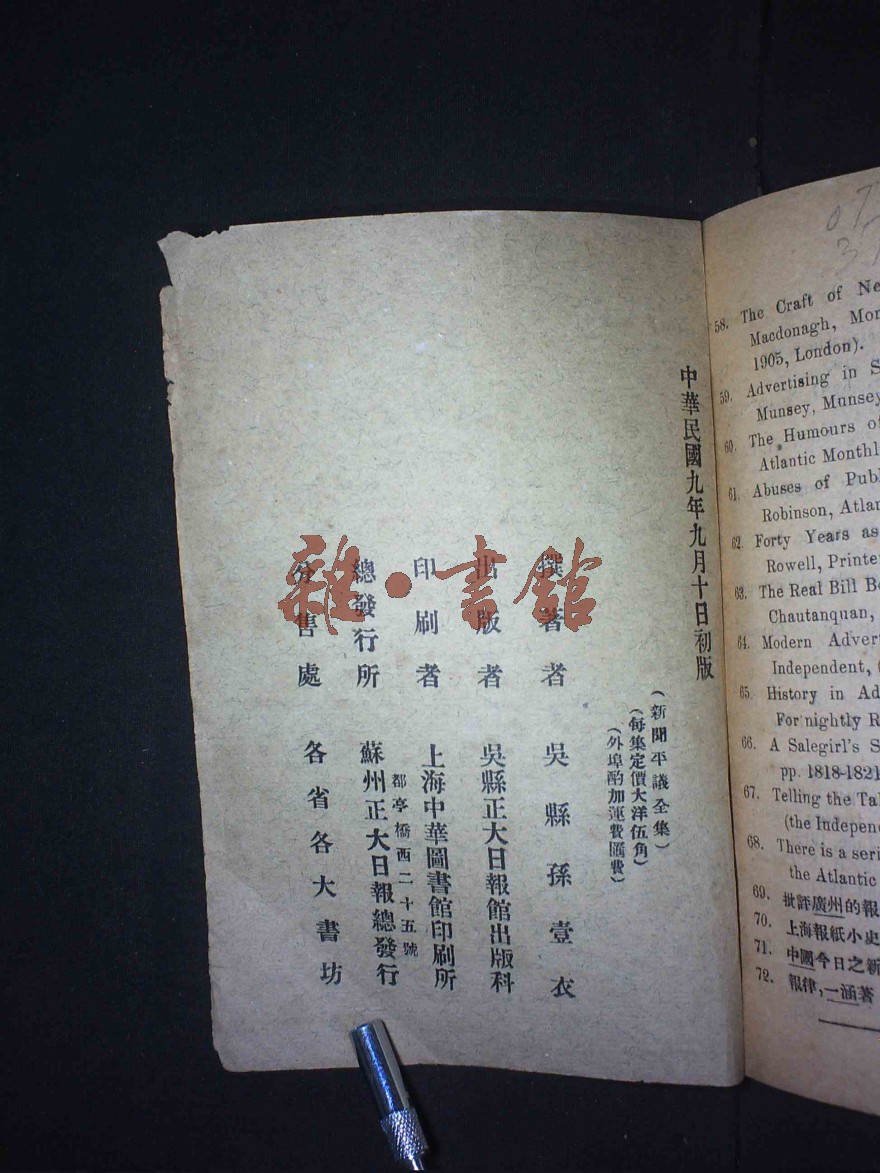 中華民國九年九月十日初版
(新聞平議全集)
(每集定價大洋伍角)
(外埠酌加運費匯費)
撰著者 吳縣孫壹衣
出版者 吳縣正大日報館出版科
印刷者 上海中華圖書館印刷所
都亭橋西二十五號
總發行所 蘇州正大日報總發行
分售處 各省各大書坊
雜·書館
07
58. The Craft of Ne
Macdonagh, Mon
1905, London).
59. Advertising in S
Munsey, Munsey
60. The Humours of
Atlantic Monthl
61. Abuses of Publ
Robinson, Atlan
62. Forty Years as
Rowell, Printe
63. The Real Bill Bo
Chautanquan,
64. Modern Advert
Independent, (
65. History in Ad
For nightly R
66. A Salegirl's S
pp. 1818-1821
67. Telling the Ta
(the Independ
68. There is a seri
the Atlantic
69. 批評廣州的報
70. 上海報紙小史
71. 中國今日之新
72. 報律,一涵著